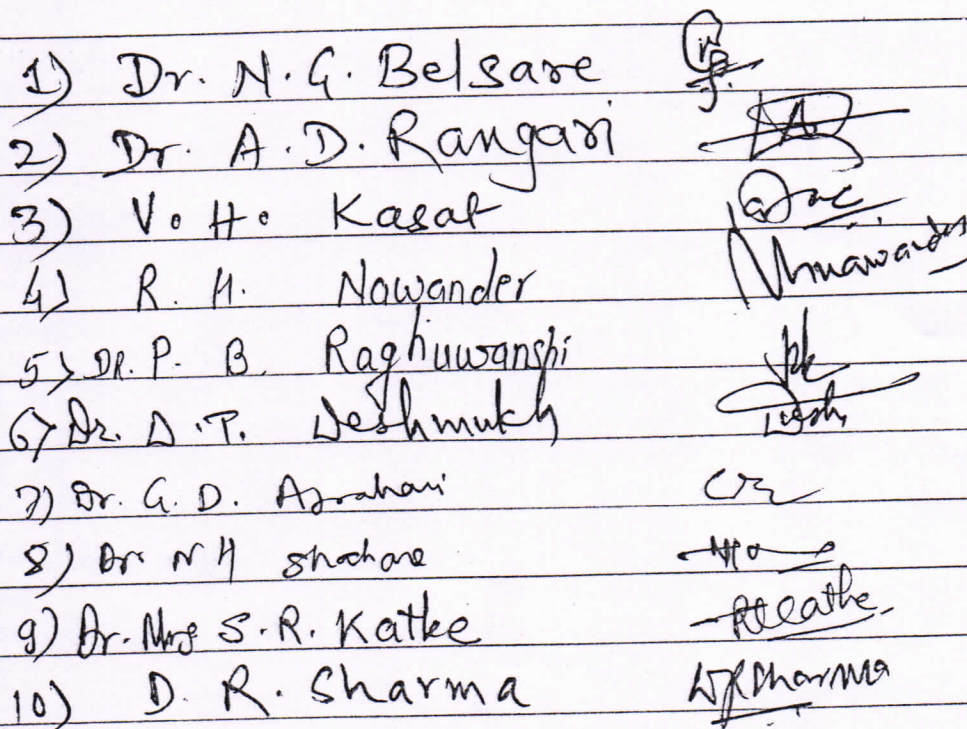 1) Dr. N. G. Belsare
2) Dr. A. D. Rangari
3) V. H. Kasat
4) R. H. Nawander Nhnawander
5) DR. P. B. Raghuwanshi
6) Dr. D. T. Deshmukh Desh
7) Dr. G. D. Agrahari
8) Dr N H
9) Dr. Mrs S. R. Katke
10) D. R. Sharma DRSharma